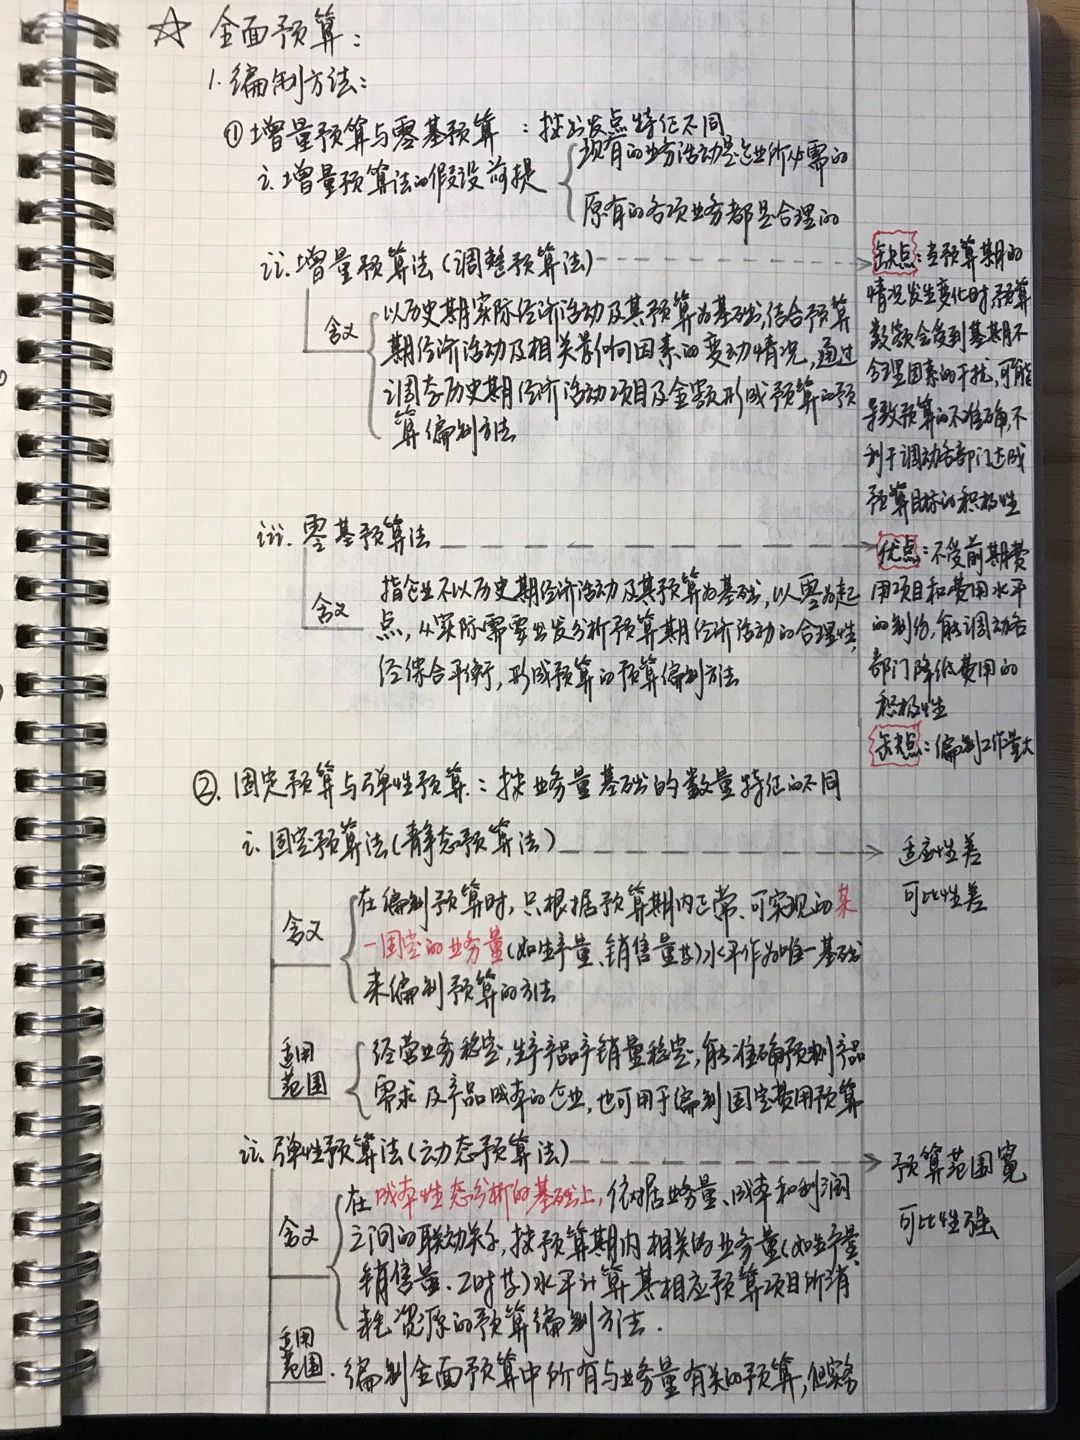 ☆ 全面预算：
1. 编制方法：
① 增量预算与零基预算：按出发点特征不同
i. 增量预算法的假设前提
现有的业务活动是企业所必需的
原有的各项业务都是合理的
ii. 增量预算法（调整预算法）
含义
以历史期实际经济活动及其预算为基础，结合预算
期经济活动及相关影响因素的变动情况，通过
调整历史期经济活动项目及金额形成预算的预
算编制方法
缺点：当预算期的
情况发生变化时，预算
数额会受到基期不
合理因素的干扰，可能
导致预算的不准确，不
利于调动各部门达成
预算目标的积极性
iii. 零基预算法
含义
指企业不以历史期经济活动及其预算为基础，以零为起
点，从实际需要出发分析预算期经济活动的合理性，
经综合平衡，形成预算的预算编制方法
优点：不受前期费
用项目和费用水平
的制约，能调动各
部门降低费用的
积极性
缺点：编制工作量大
②. 固定预算与弹性预算：按业务量基础的数量特征的不同
i. 固定预算法（静态预算法）
适应性差
可比性差
含义
在编制预算时，只根据预算期内正常、可实现的某
一固定的业务量（如生产量、销售量等）水平作为唯一基础
来编制预算的方法
适用
范围
经营业务稳定，生产产品产销量稳定，能准确预测产品
需求及产品成本的企业，也可用于编制固定费用预算
ii. 弹性预算法（动态预算法）
预算范围宽
可比性强
含义
在成本性态分析的基础上，依据业务量、成本和利润
之间的联动关系，按预算期内相关的业务量（如生产量、
销售量、工时等）水平计算其相应预算项目所消
耗资源的预算编制方法.
适用
范围.
编制全面预算中所有与业务量有关的预算，但实务